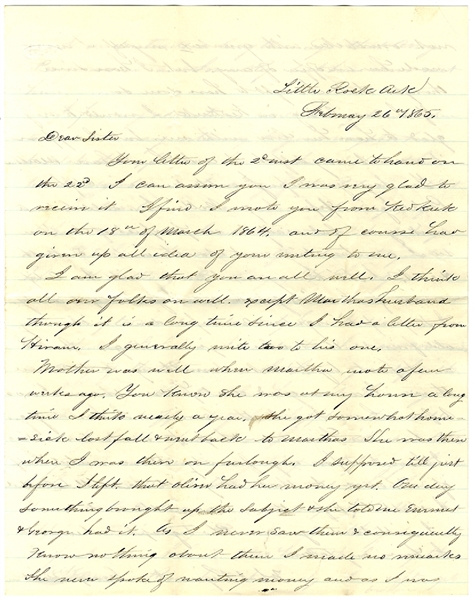 Little Rock Ark
Febuay 26th 1865.
Dear Sister
Your letter of the 2d inst came to hand on
the 22d I can assure you I was very glad to
recieve it I find I wrote you from
on the 18th of March 1864. and of course had
given up all idea of your writing to me.
I am glad that you are all well. I think
all our folks are well. except Marthas husband
though it is a long time since I had a letter from
Hiram. I generally write two to his one.
Mother was well when Martha wrote a few
weeks ago. You know she was at my house a long
time I think nearly a year. She got somewhat home-
-sick last fall & went back to Marthas She was there
when I was there on furlough. I supposed till just
before I left. that Olin had her money yet. One day
something brought up the subject & she told me Emmet
& George had it. As I never saw them & consequently
know nothing about them I made no remarks
She never spoke of wanting money and as I was